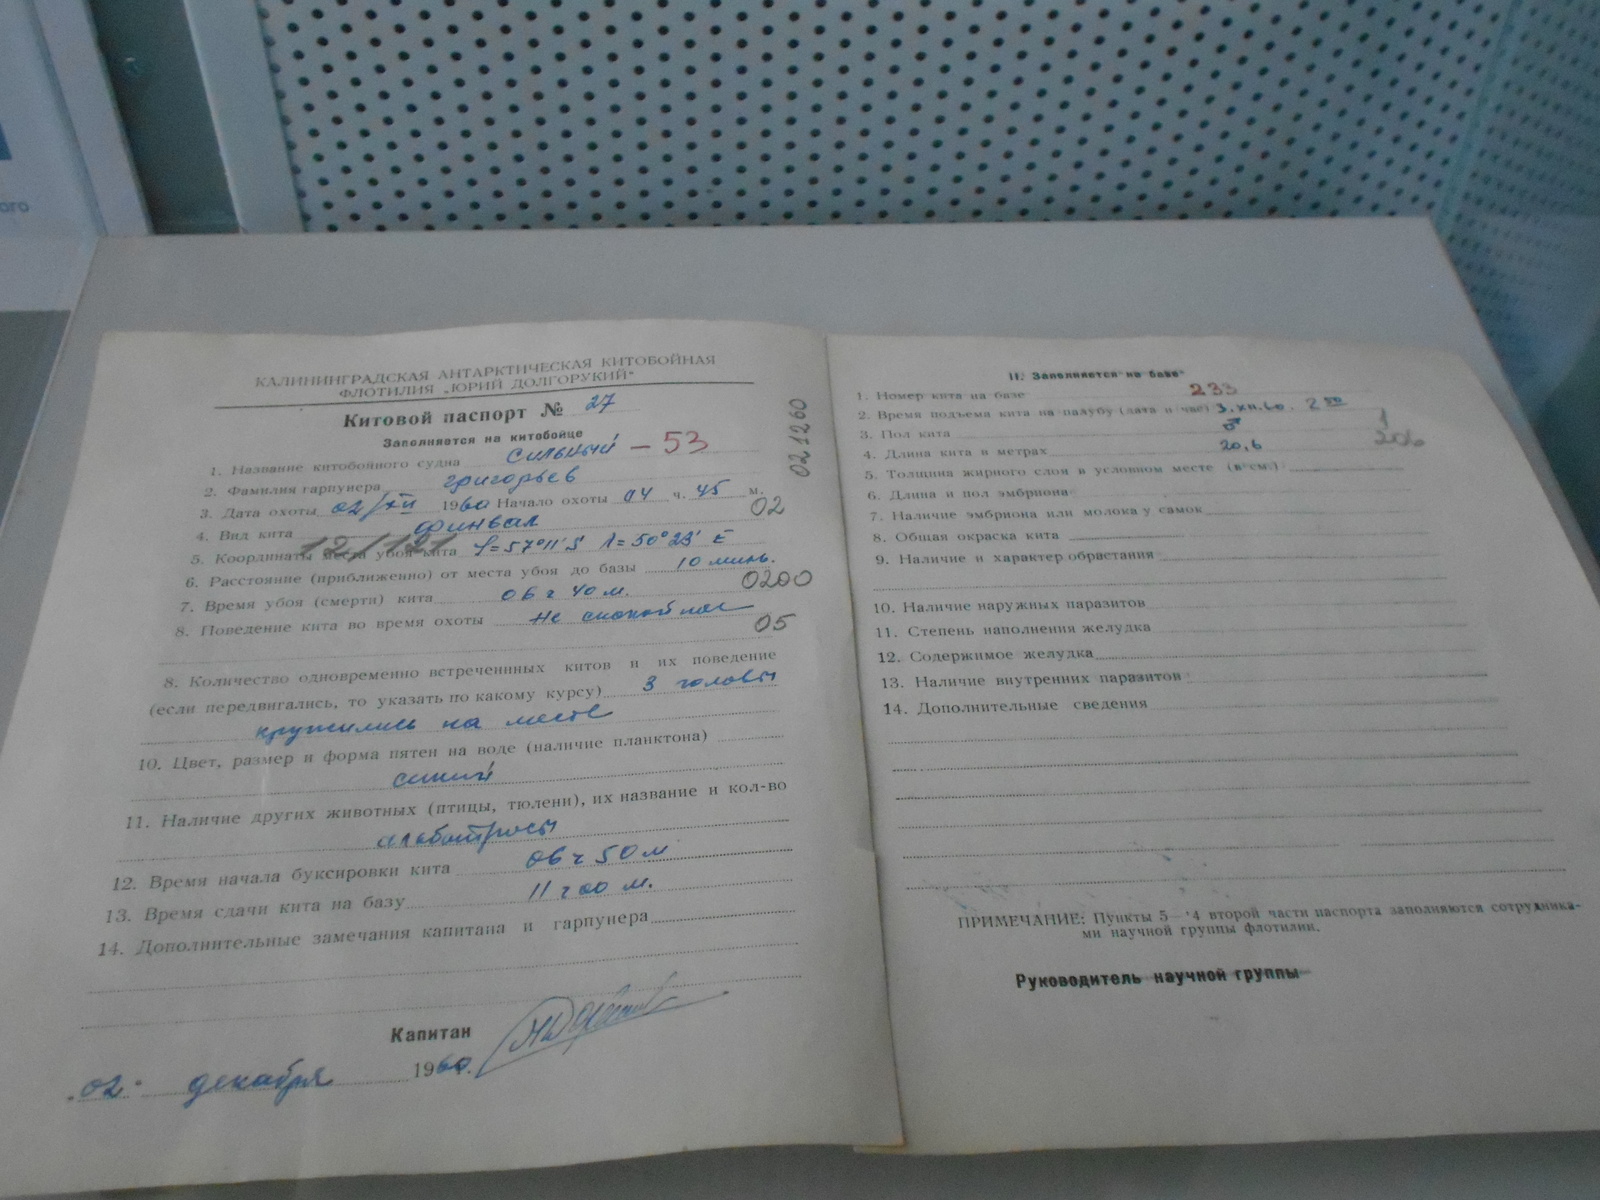 ого
КАЛИНИНГРАДСКАЯ АНТАРКТИЧЕСКАЯ КИТОБОЙНАЯ
ФЛОТИЛИЯ „ЮРИЙ ДОЛГОРУКИЙ"
Китовой паспорт № 27
Заполняется на китобойце
1. Название китобойного судна Сильный – 53
2. Фамилия гарпунера Григорьев
3. Дата охоты 02/XII 1960 Начало охоты 04 ч. 45 м.
021260
4. Вид кита Финвал
02
5. Координаты места убоя кита φ=57°11′S λ=50°23′E
12/121
6. Расстояние (приближенно) от места убоя до базы 10 миль.
7. Время убоя (смерти) кита 06 ч 40 м.
0200
8. Поведение кита во время охоты Не спокойное
05
8. Количество одновременно встреченнных китов и их поведение
(если передвигались, то указать по какому курсу) 3 головы
кружились на месте
10. Цвет, размер и форма пятен на воде (наличие планктона)
синий
11. Наличие других животных (птицы, тюлени), их название и кол-во
альботросы
12. Время начала буксировки кита 06 ч 50 м
13. Время сдачи кита на базу 11 ч 00 м.
14. Дополнительные замечания капитана и гарпунера
Капитан
„02" декабря 1960 г.
II. Заполняется на базе
1. Номер кита на базе 233
2. Время подъема кита на палубу (дата и час) 3.XII.60. 2 00
3. Пол кита ♂
1
4. Длина кита в метрах 20,6
206
5. Толщина жирного слоя в условном месте (в см.)
6. Длина и пол эмбриона
7. Наличие эмбриона или молока у самок
8. Общая окраска кита
9. Наличие и характер обрастания
10. Наличие наружных паразитов
11. Степень наполнения желудка
12. Содержимое желудка
13. Наличие внутренних паразитов
14. Дополнительные сведения
ПРИМЕЧАНИЕ: Пункты 5—14 второй части паспорта заполняются сотрудника-
ми научной группы флотилии.
Руководитель научной группы